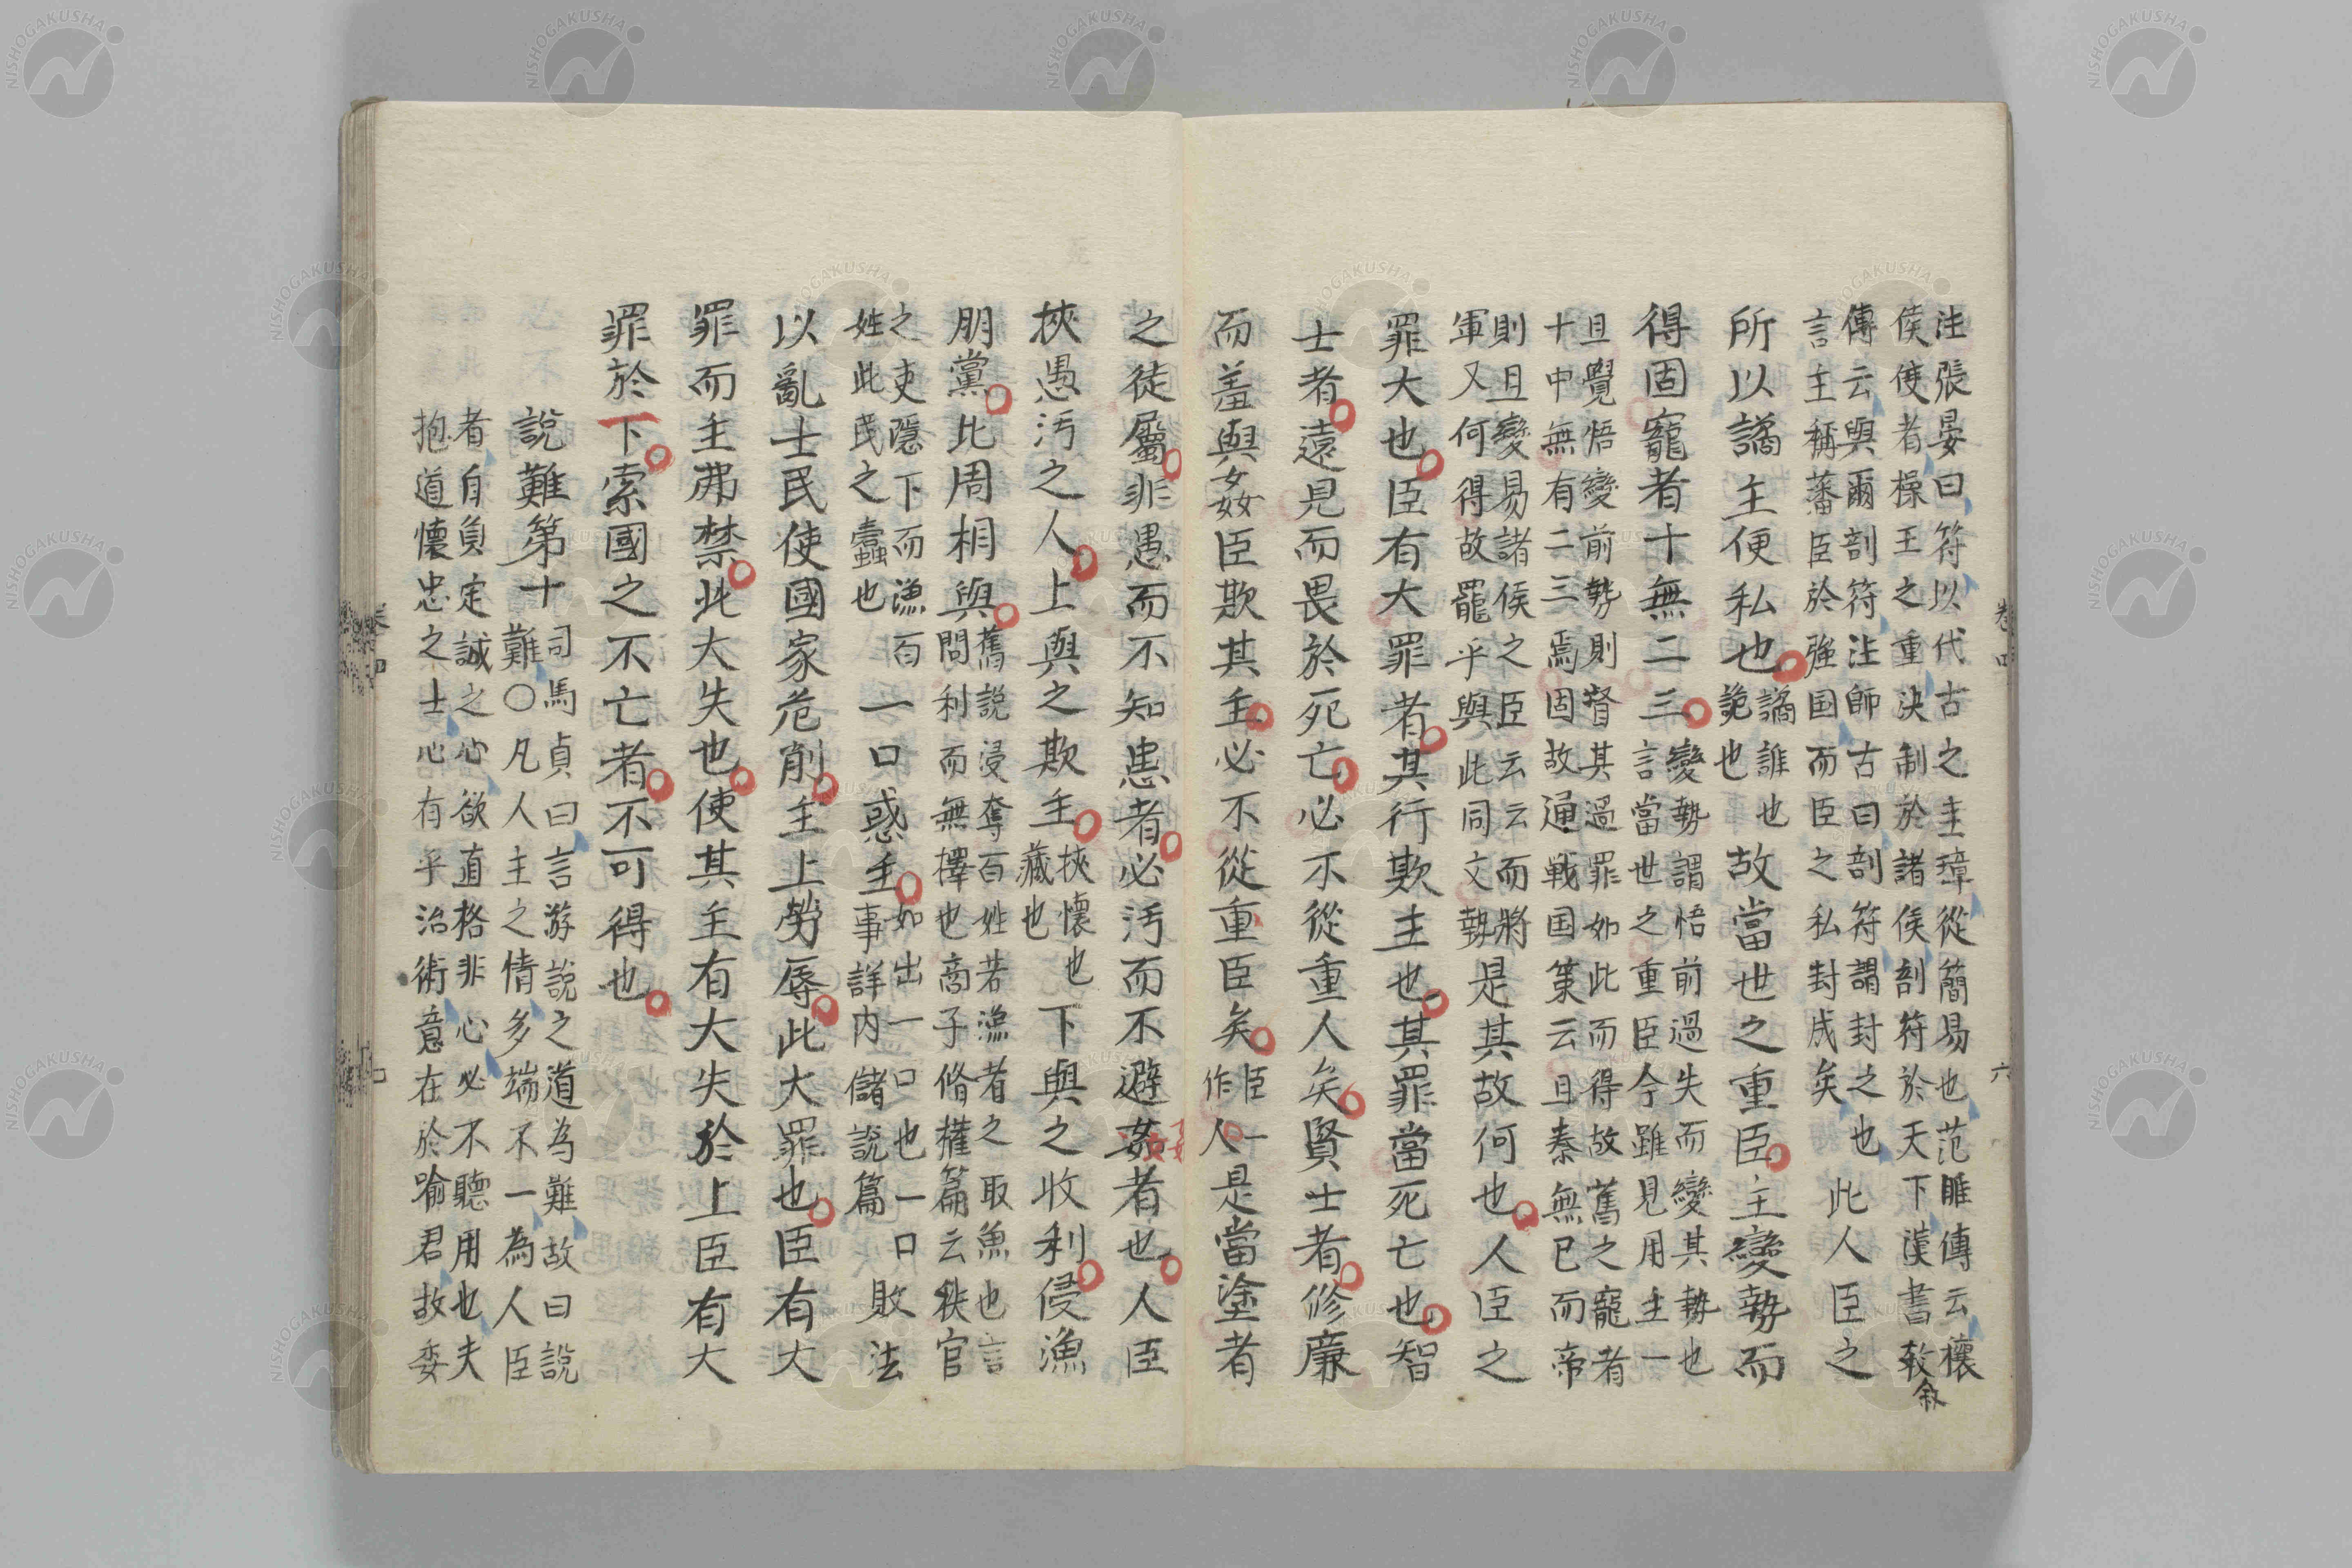 注張晏曰符以代古之圭璋從簡易也范睢傳云穰
侯使者操王之重決制於諸侯剖符於天下漢書敘
傳云與爾剖符注師古曰剖符謂封之也
言主稱藩臣於強国而臣之私封成矣
此人臣之
所以譎主便私也
譎誰也
詭也
故當世之重臣主變勢而
得固寵者十無二三
變勢謂悟前過失而變其勢也
言當世之重臣今雖見用主一
旦覺悟變前勢則督其過罪如此而得故舊之寵者
十中無有二三焉固故通戦国策云日秦無已而帝
則且變易諸侯之臣云云而將
軍又何得故寵乎與此同文勢
是其故何也人臣之
罪大也臣有大罪者其行欺主也其罪當死亡也智
士者遠見而畏於死亡必不從重人矣賢士者修廉
而羞與姦臣欺其主必不從重臣矣
臣一
作人
是當塗者
之徒屬非愚而不知患者必汚而不避姦者也人臣
挾愚汚之人上與之欺主
挾懷也
藏也
下與之收利侵漁
朋黨比周相與
舊説浸奪百姓若漁者之取魚也言
問利而無擇也商子脩權篇云秩官
之吏隱下而漁百
姓此民之蠹也
一口惑主
如出一口也一口
事詳内儲説篇
敗法
以亂士民使國家危削主上勞辱此大罪也臣有大
罪而主弗禁此大失也使其主有大失於上臣有大
罪於下索國之不亡者不可得也
説難第十
司馬貞曰言游説之道為難故曰説
難〇凡人主之情多端不一為人臣
者自負定誠之心欲直格非心必不聽用也夫
抱道懷忠之士心有乎治術意在於喻君故委